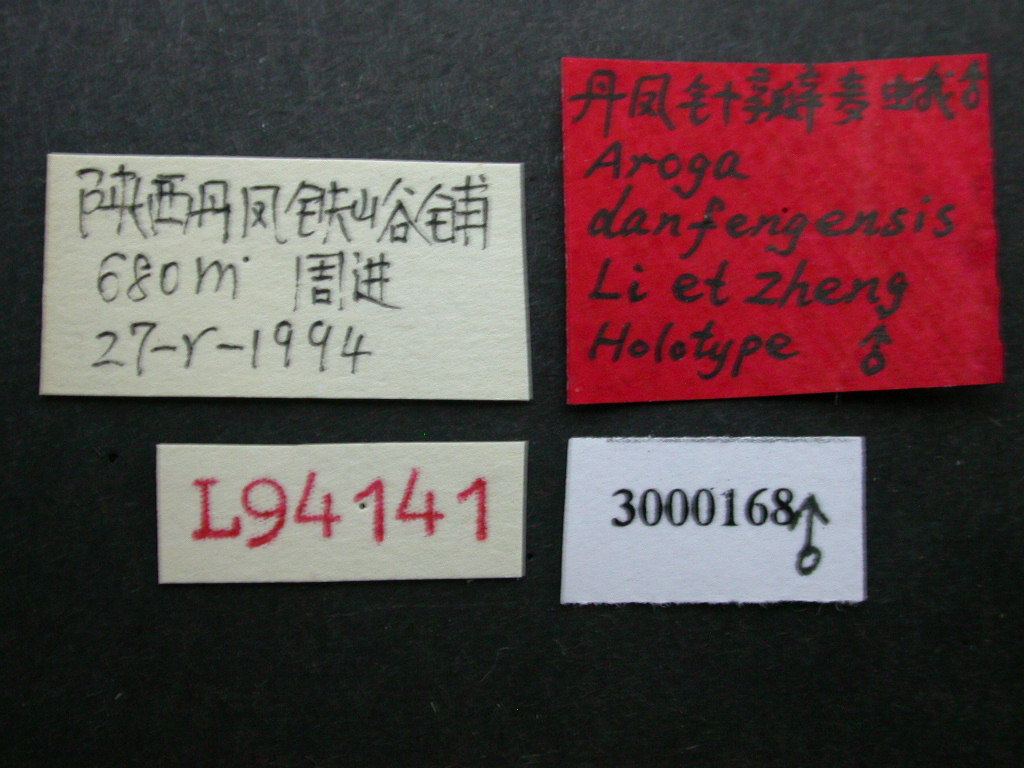 陕西丹凤铁峪铺
680m 周进
27-V-1994
丹凤针瓣麦蛾♂
Aroga
danfengensis
Li et Zheng
Holotype ♂
L94141
3000168♂